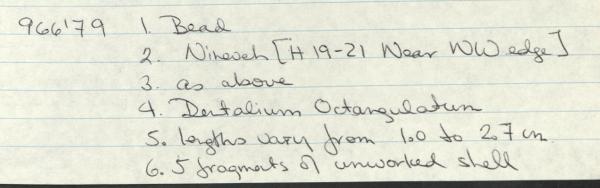 966'79 1. Bead
2. Nineveh [H 19-21 Near WW edge]
3. as above
4. Dentalium Octangulatum
5. lengths vary from 1.0 to 2.7 cm.
6. 5 fragments of unworked shell